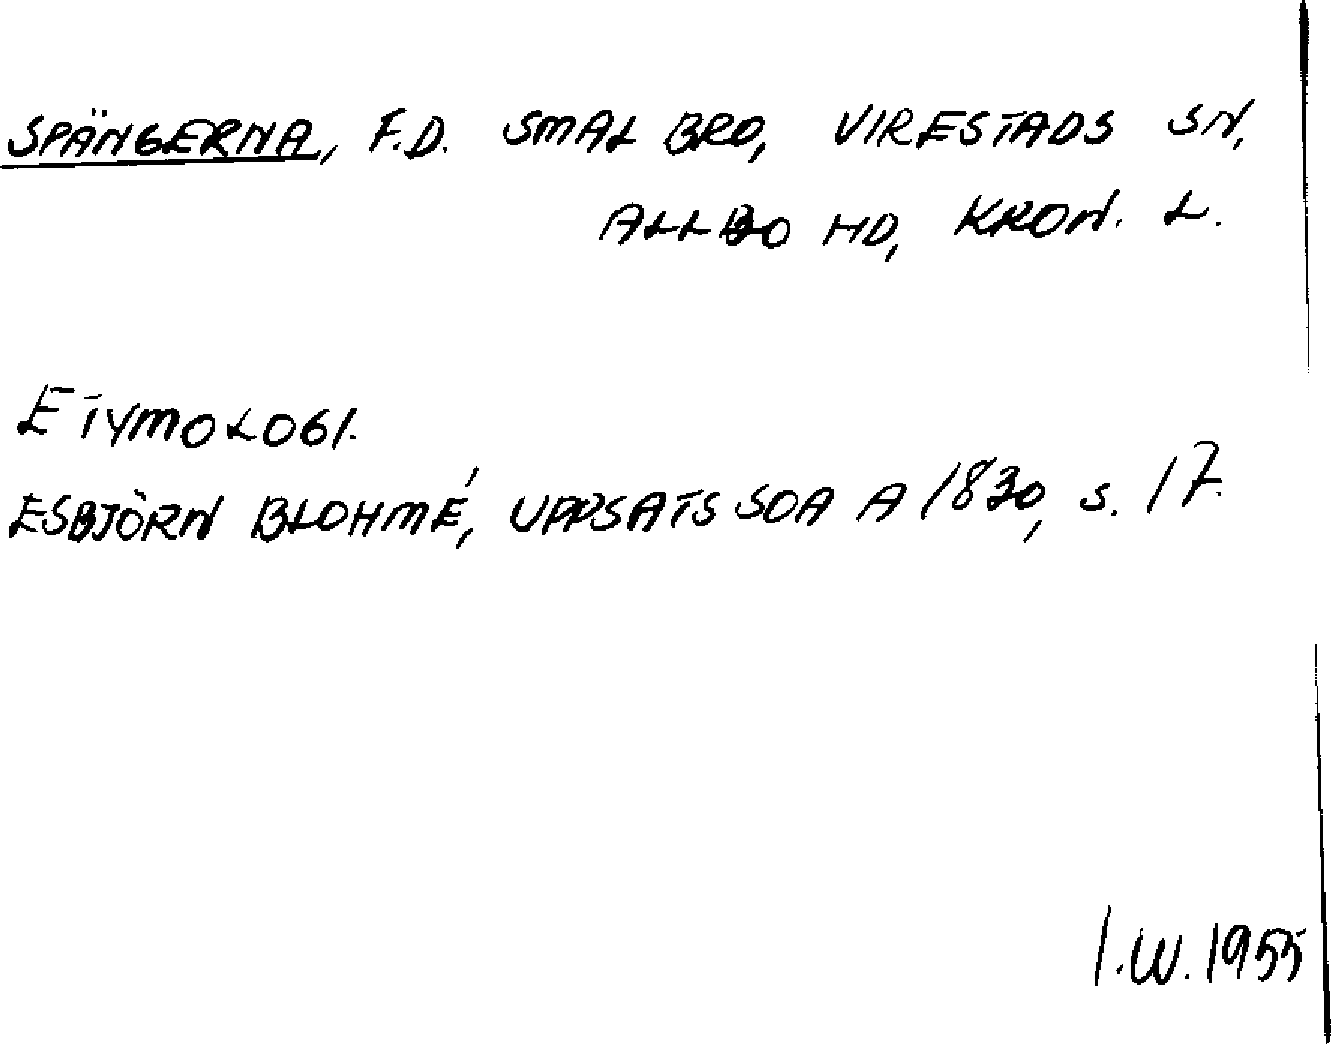 SPÄNGERNA, F.D. SMAL BRO, VIRESTADS SN,
ALLBO HD, KRON. L.
ETYMOLOGI.
ESBJÖRN BLOHMÉ, UPPSATS SOA A 1830, S. 17.
I.W. 1955